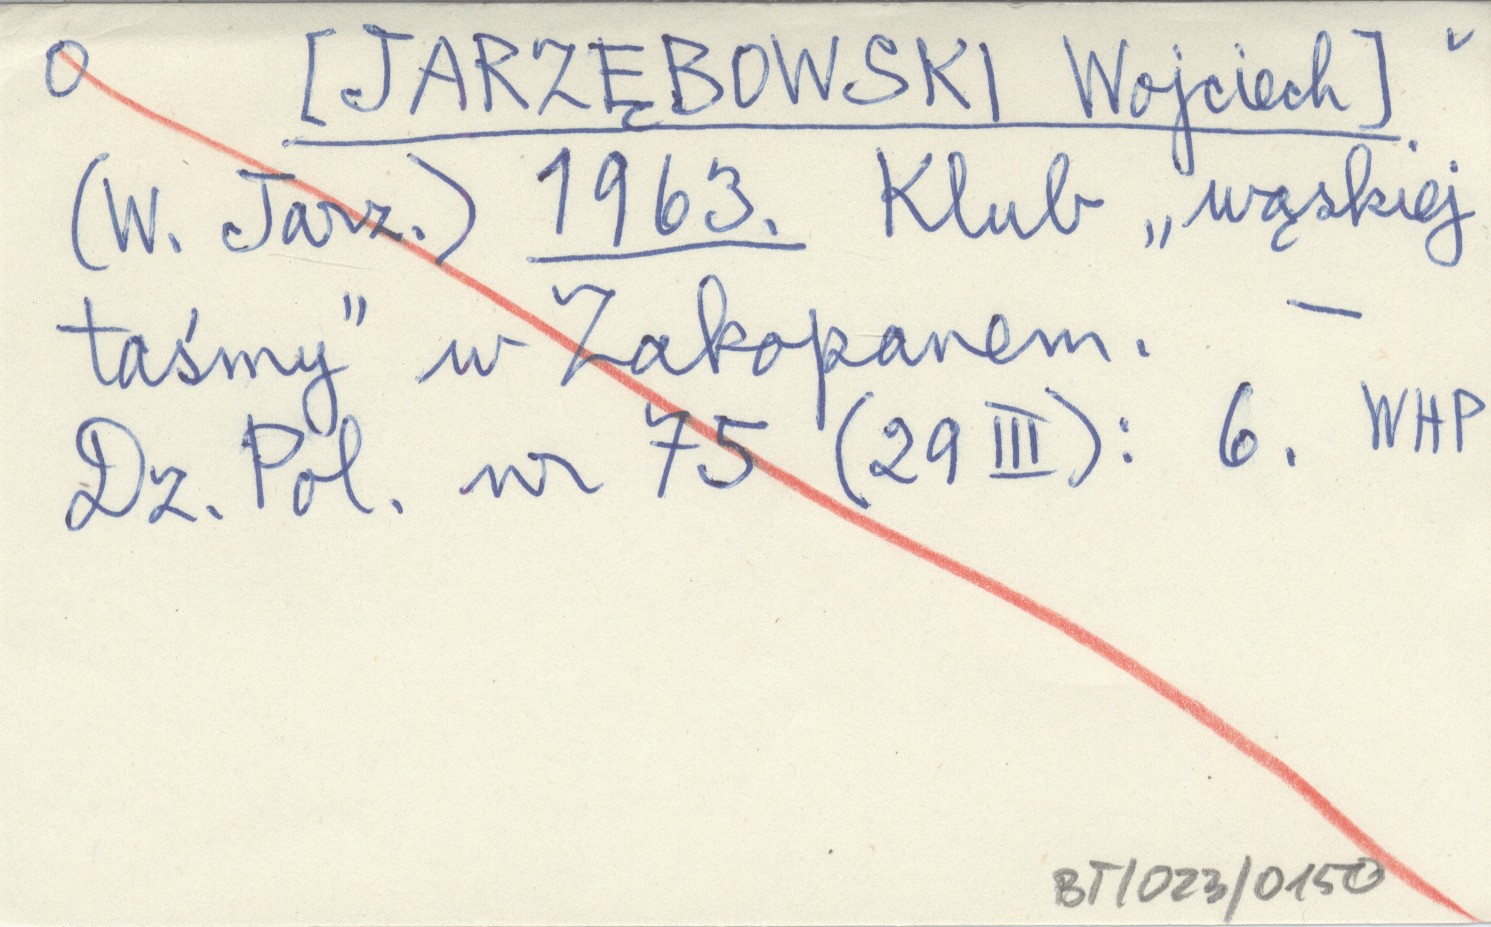 O [JARZĘBOWSKI Wojciech]
(W. Jarz.) 1963. Klub „wąskiej
taśmy" w Zakopanem. —
Dz. Pol. nr 75 (29 III): 6. WHP
BT/023/0150